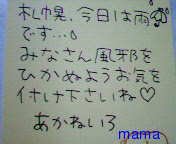 札幌、今日は雨
です…。
みなさん風邪を
ひかぬようお気を
付け下さいね♡
あかねいろ
mama